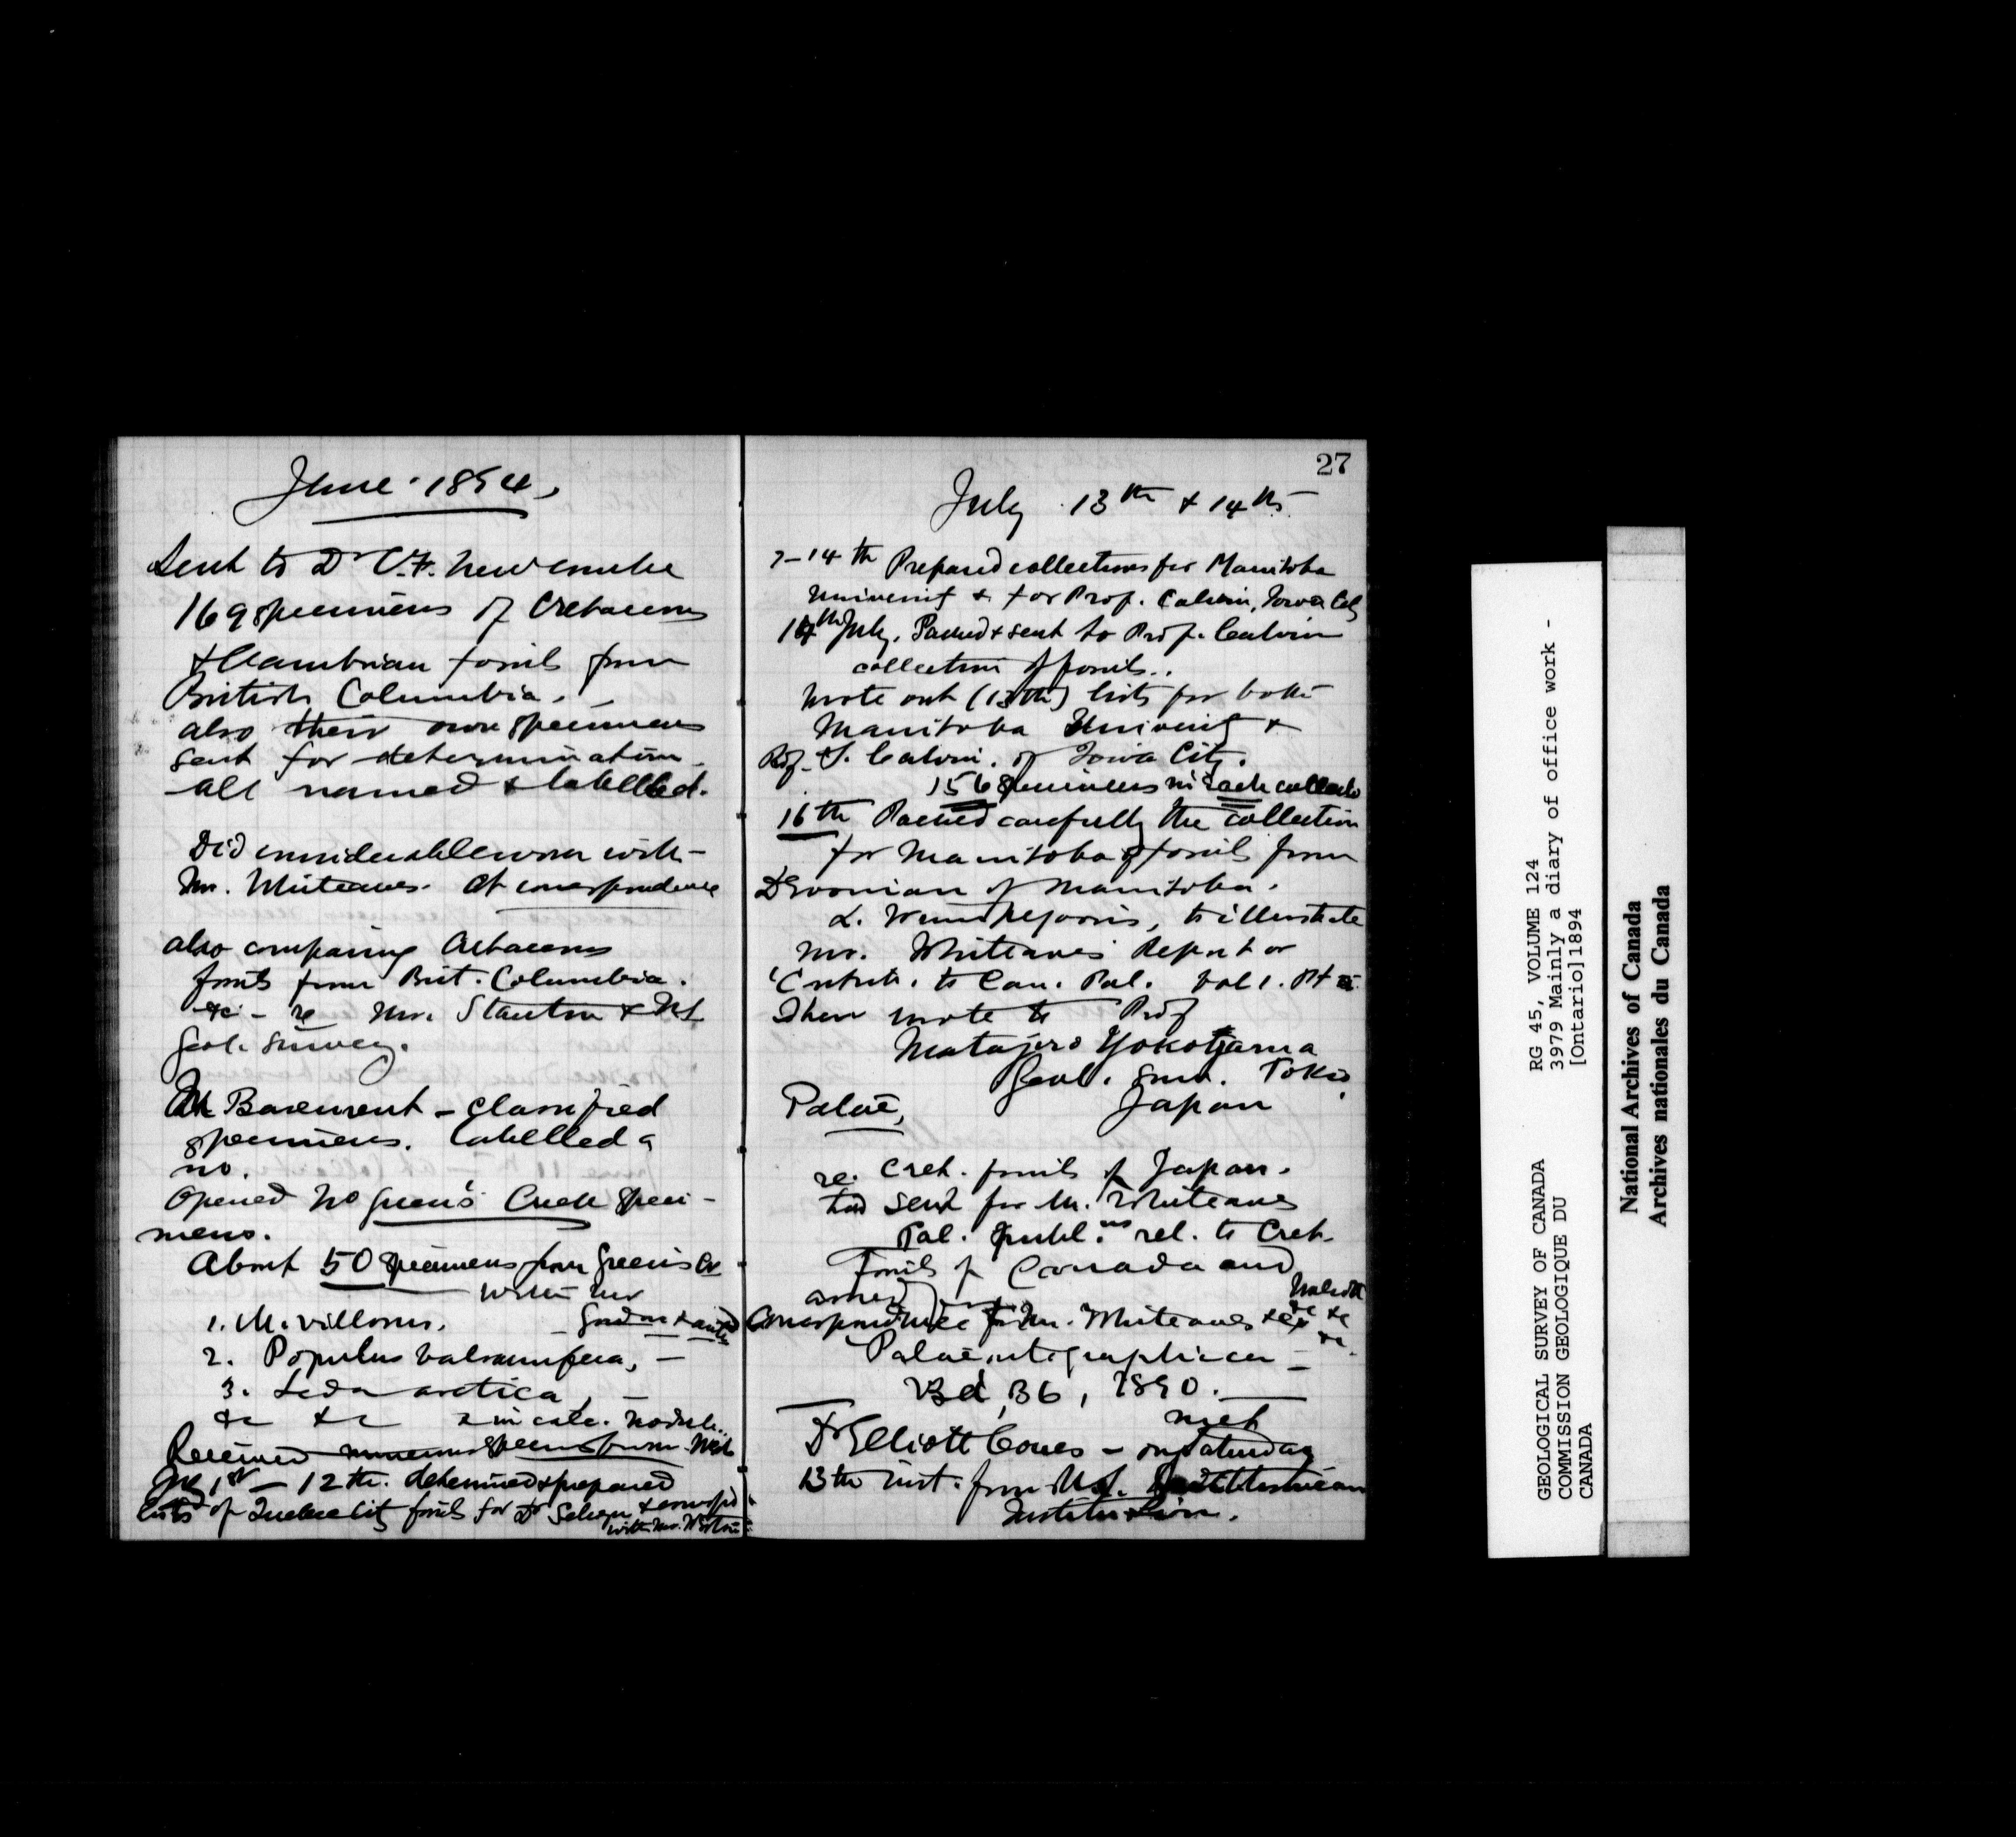 June 1894.
Sent to Dr C.F. Newcombe
169 specimens of Cretaceous
& Cambrian fossils from
British Columbia.
also their own specimens
sent for determination.
All named & labelled.
Did considerable work with
Mr. Whiteaves. At correspondence
also comparing Cretaceous
fossils from Brit. Columbia.
&c - re Mr. Stanton & US
Geol. Survey.
In Basement - classified
specimens. labelled &
no.
Opened no Green's Creek speci-
mens.
About 50 specimens from Green's Cr
1. M. villosus.
2. Populus balsamifera, —
3. Leda arctica, —
&c &c in calc. nodule..
Received numerous specimens from
July 1st — 12th. determined & prepared
lists of Quebec City fossils for Dr Selwyn &
with Mr. Weston
27
July 13th & 14th
7-14th Prepared collections for Manitoba
University & for Prof. Calvin, Iowa City
14th July. Packed & sent to Prof. Calvin
collection of fossils..
Wrote out (13th) lists for both
Manitoba University &
Prof. S. Calvin. of Iowa City.
156 specimens in each collection
16th Packed carefully the collection
for Manitoba of fossils from
Devonian of Manitoba.
L. Winnipegosis, to illustrate
Mr. Whiteaves Report or
'Contrib. to Can. Pal. Vol 1. Pt
Then wrote to Prof
Matajiro Yokoyama
Geol. Surv. Tokio
Palae, Japan
re. Cret. fossils of Japan.
had sent for Mr. Whiteaves
Pal. publ.ns rel. to Cret.
Fossils of Canada and
Correspondence for Mr. Whiteaves &c &c
Palaeontographica —
Bd, 36, 1890.
met
Dr Elliott Coues — on Saturday
13th inst. from U.S. Smithsonian
Institution.
RG 45, VOLUME 124
3979 Mainly a diary of office work -
[Ontario]1894
GEOLOGICAL SURVEY OF CANADA
COMMISSION GEOLOGIQUE DU
CANADA
National Archives of Canada
Archives nationales du Canada